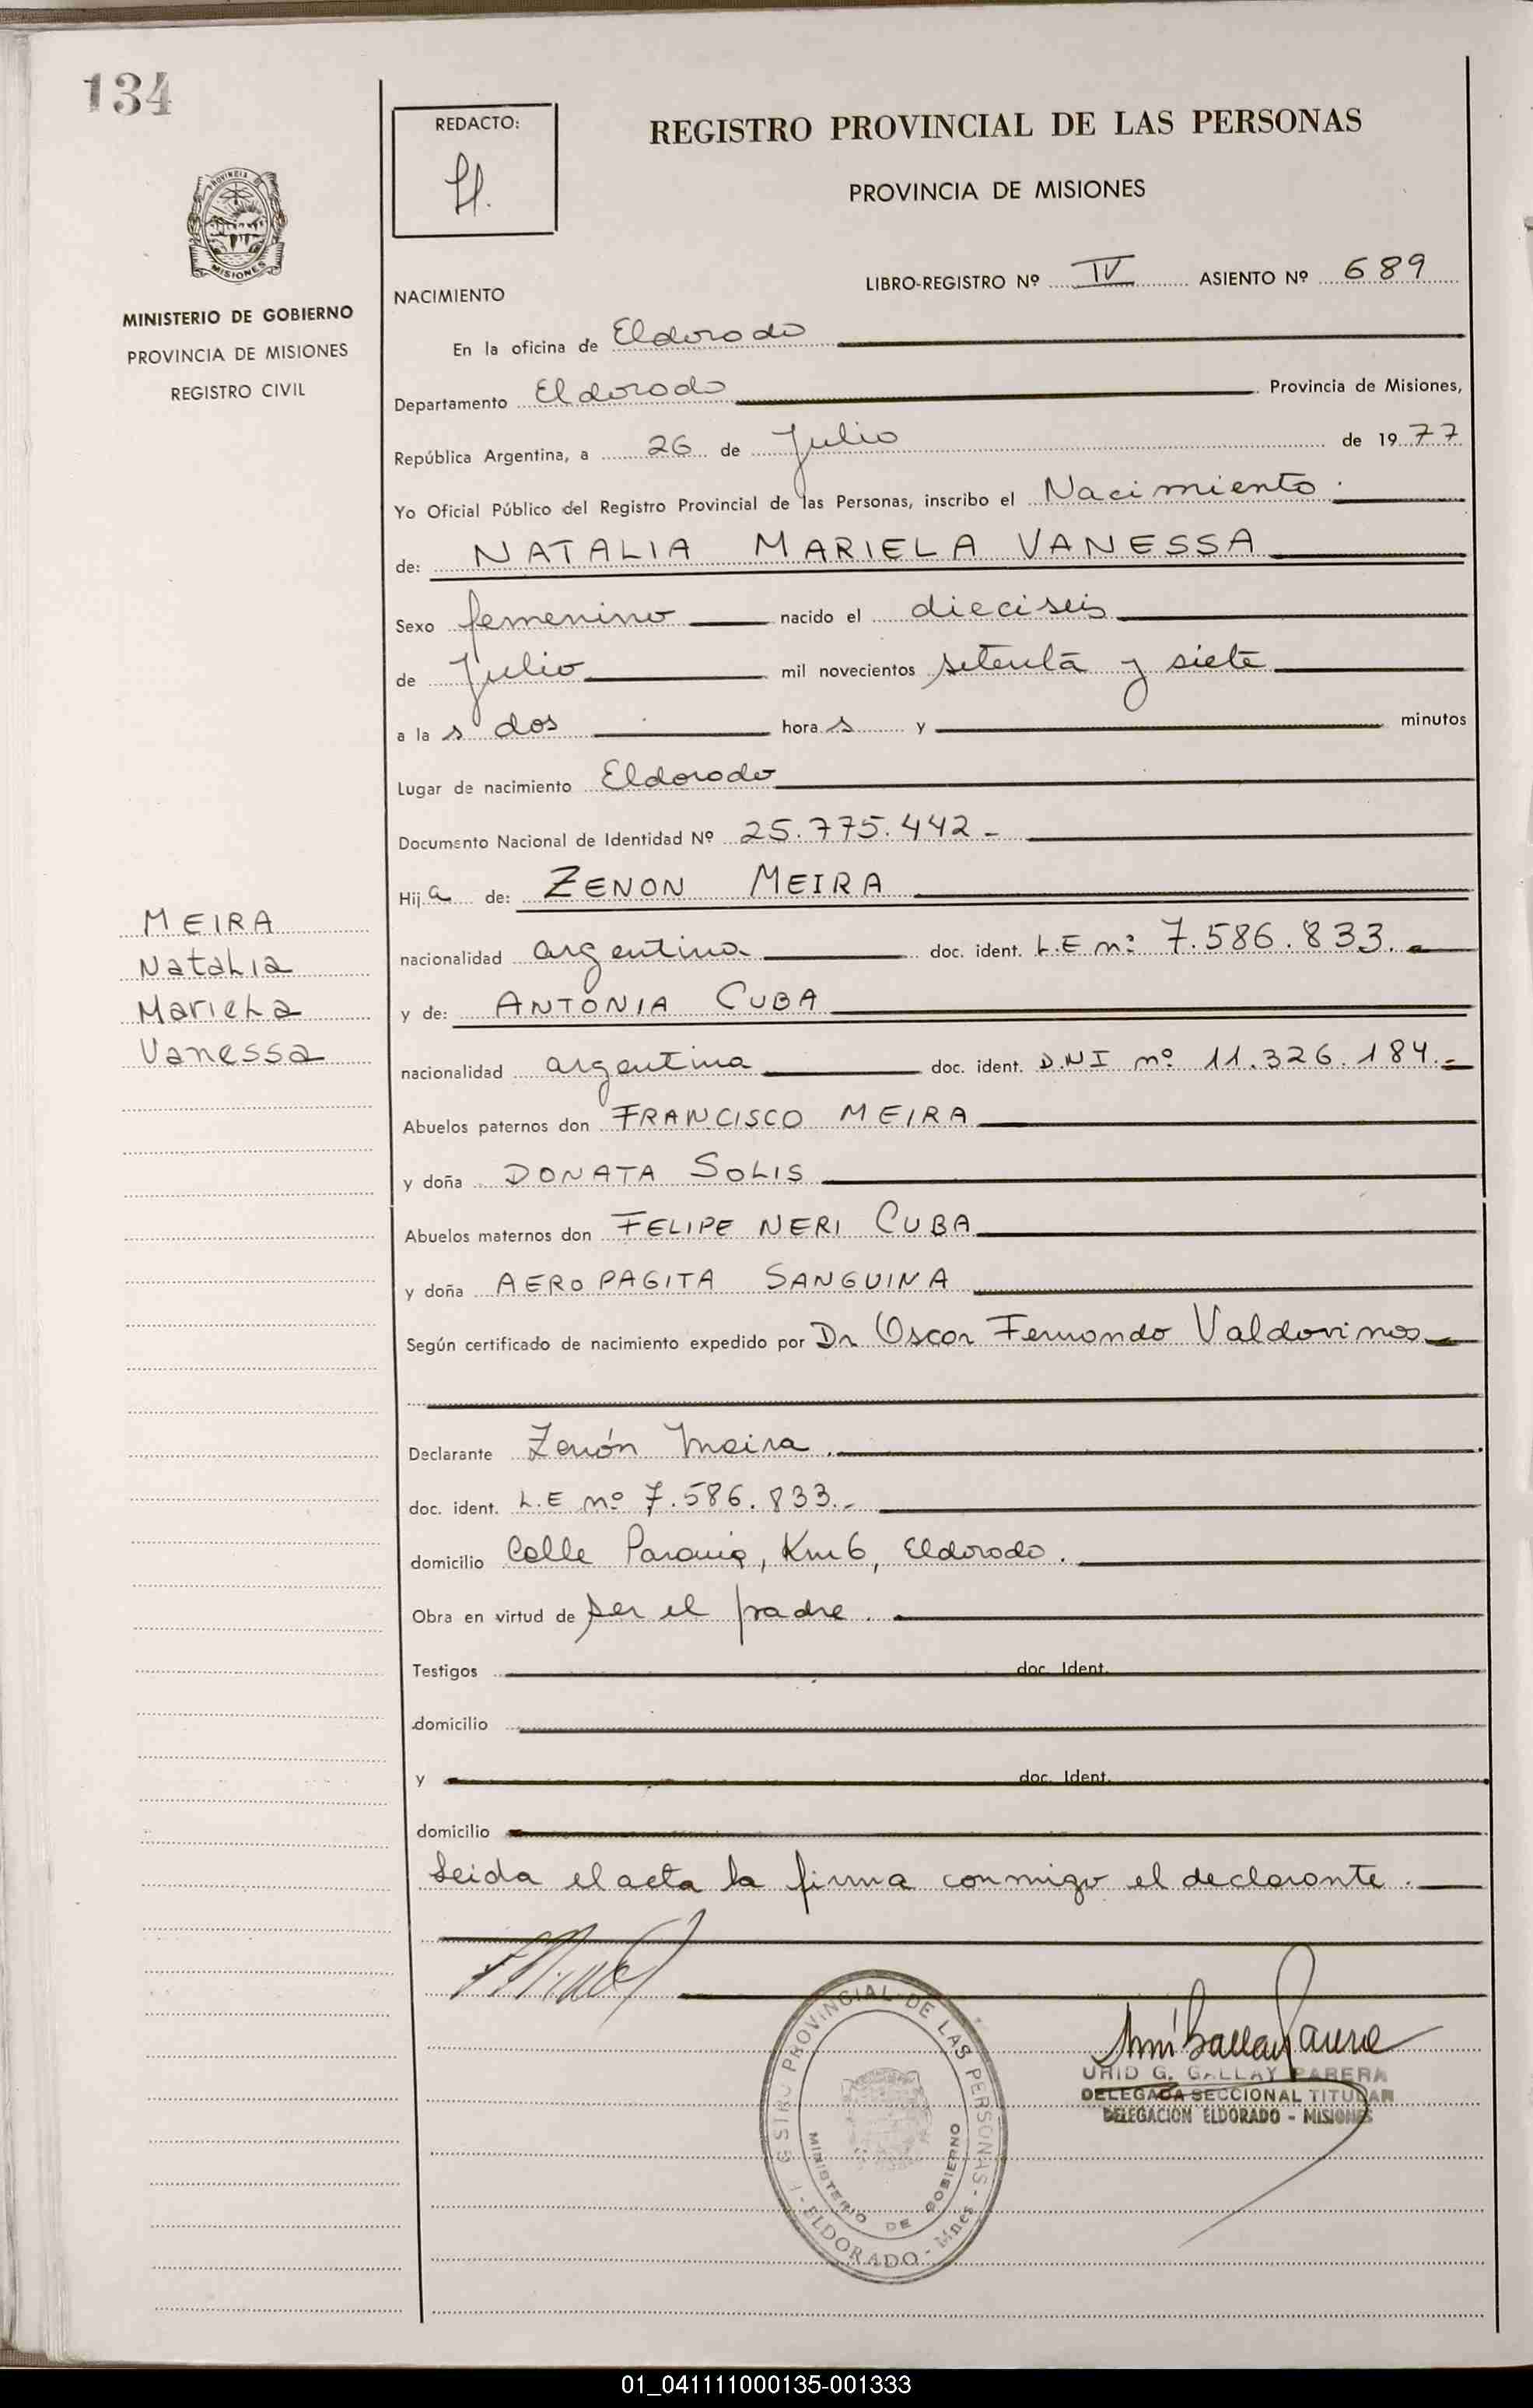 134
REDACTO:
REGISTRO PROVINCIAL DE LAS PERSONAS
PROVINCIA DE MISIONES
PROVINCIA DE
MISIONES
MINISTERIO DE GOBIERNO
PROVINCIA DE MISIONES
REGISTRO CIVIL
LIBRO-REGISTRO Nº IV ASIENTO Nº 689
NACIMIENTO
En la oficina de Eldorado
Departamento Eldorado Provincia de Misiones,
República Argentina, a 26 de Julio de 1977
Yo Oficial Público del Registro Provincial de las Personas, inscribo el Nacimiento
de: NATALIA MARIELA VANESSA
Sexo femenino nacido el dieciseis
de Julio mil novecientos setenta y siete
a la s dos hora s y minutos
Lugar de nacimiento Eldorado
Documento Nacional de Identidad Nº 25.775.442-
Hij a de: ZENON MEIRA
MEIRA
Natalia
Mariela
Vanessa
nacionalidad argentina doc. ident. L.E nº 7.586.833.-
y de: ANTONIA CUBA
nacionalidad argentina doc. ident. D.N.I nº 11.326.184.-
Abuelos paternos don FRANCISCO MEIRA
y doña DONATA SOLIS
Abuelos maternos don FELIPE NERI CUBA
y doña AEROPAGITA SANGUINA
Según certificado de nacimiento expedido por Dr Oscar Fernando Valdovinos
Declarante Zenón Meira.
doc. ident. L.E nº 7.586.833.-
domicilio Calle Paraná, Km 6, Eldorado.
Obra en virtud de ser el padre.
Testigos doc. Ident.
domicilio
y doc. Ident.
domicilio
Leida el acta la firma conmigo el declarante.
REGISTRO PROVINCIAL DE LAS PERSONAS - ELDORADO - Mnes
MINISTERIO DE GOBIERNO
URID G. GALLAY PARERA
DELEGADA SECCIONAL TITULAR
DELEGACION ELDORADO - MISIONES
01_041111000135-001333